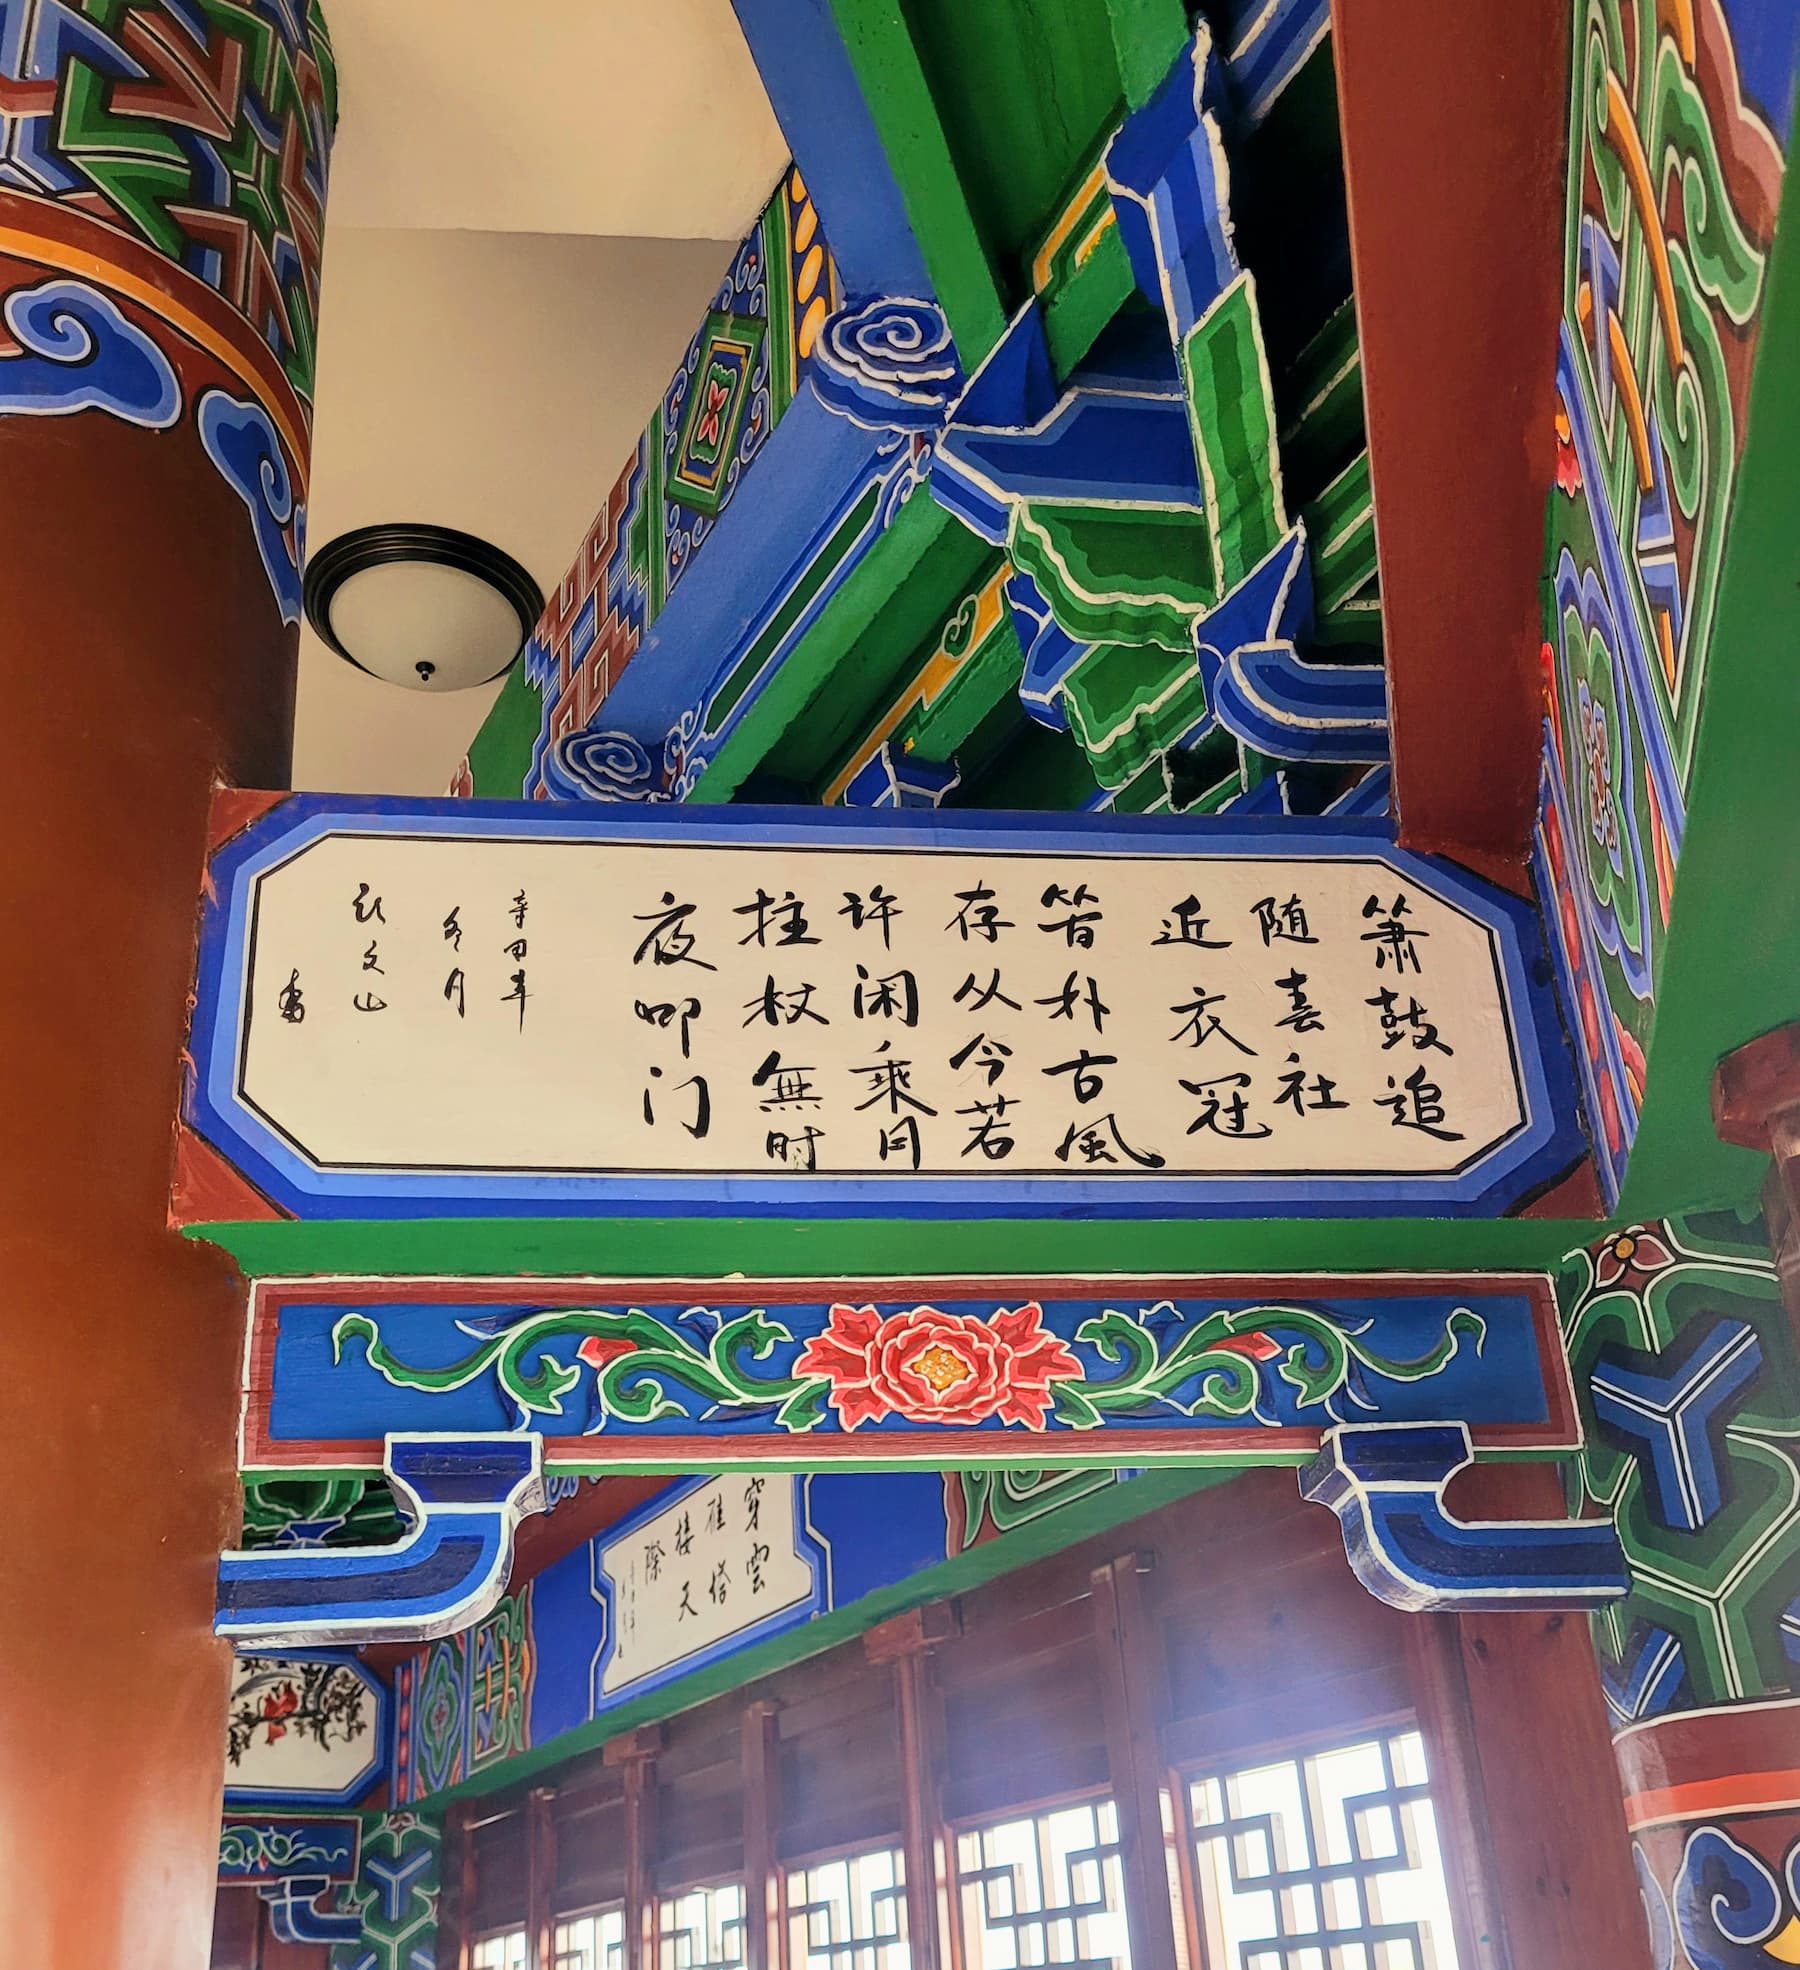 箫鼓追
随春社
近衣冠
简朴古風
存从今若
许闲乘月
拄杖無时
夜叩门
辛丑年
冬月
文山
书
穿雲
雁塔
接天
際